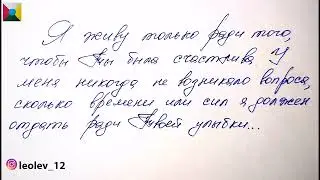 Я живу только ради того,
чтобы Ты была счастлива. У
меня никогда не возникало вопроса,
сколько времени или сил я должен
отдать ради Твоей улыбки...
leolev_12